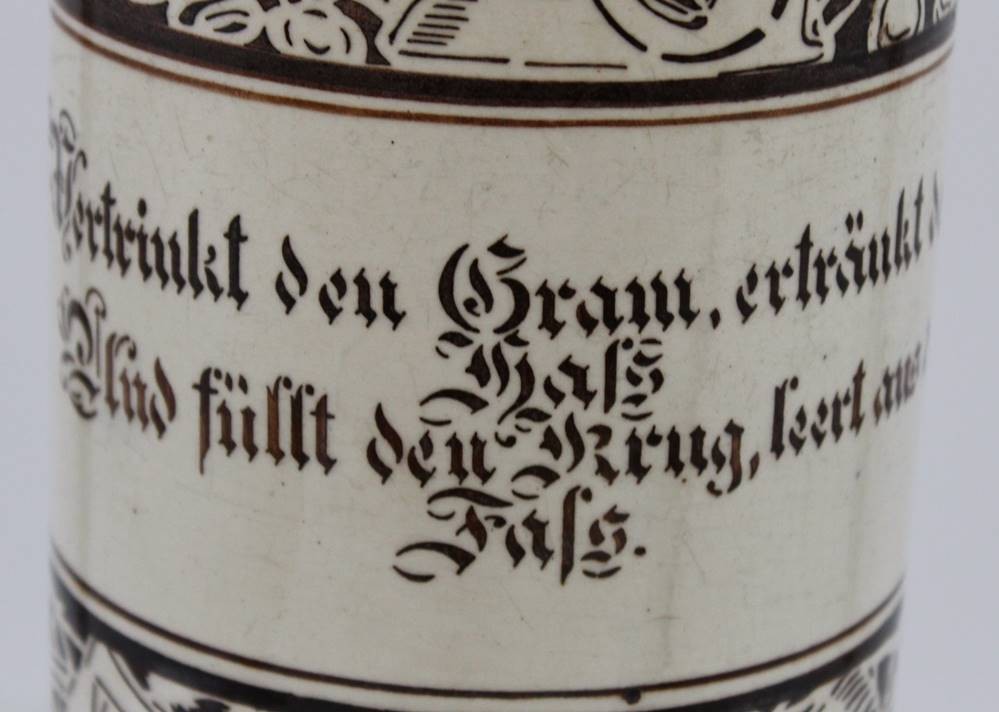 Vertrinkt den Gram, ertränkt
Haſs
Und füllt den Krug, leert aus
Faſs.